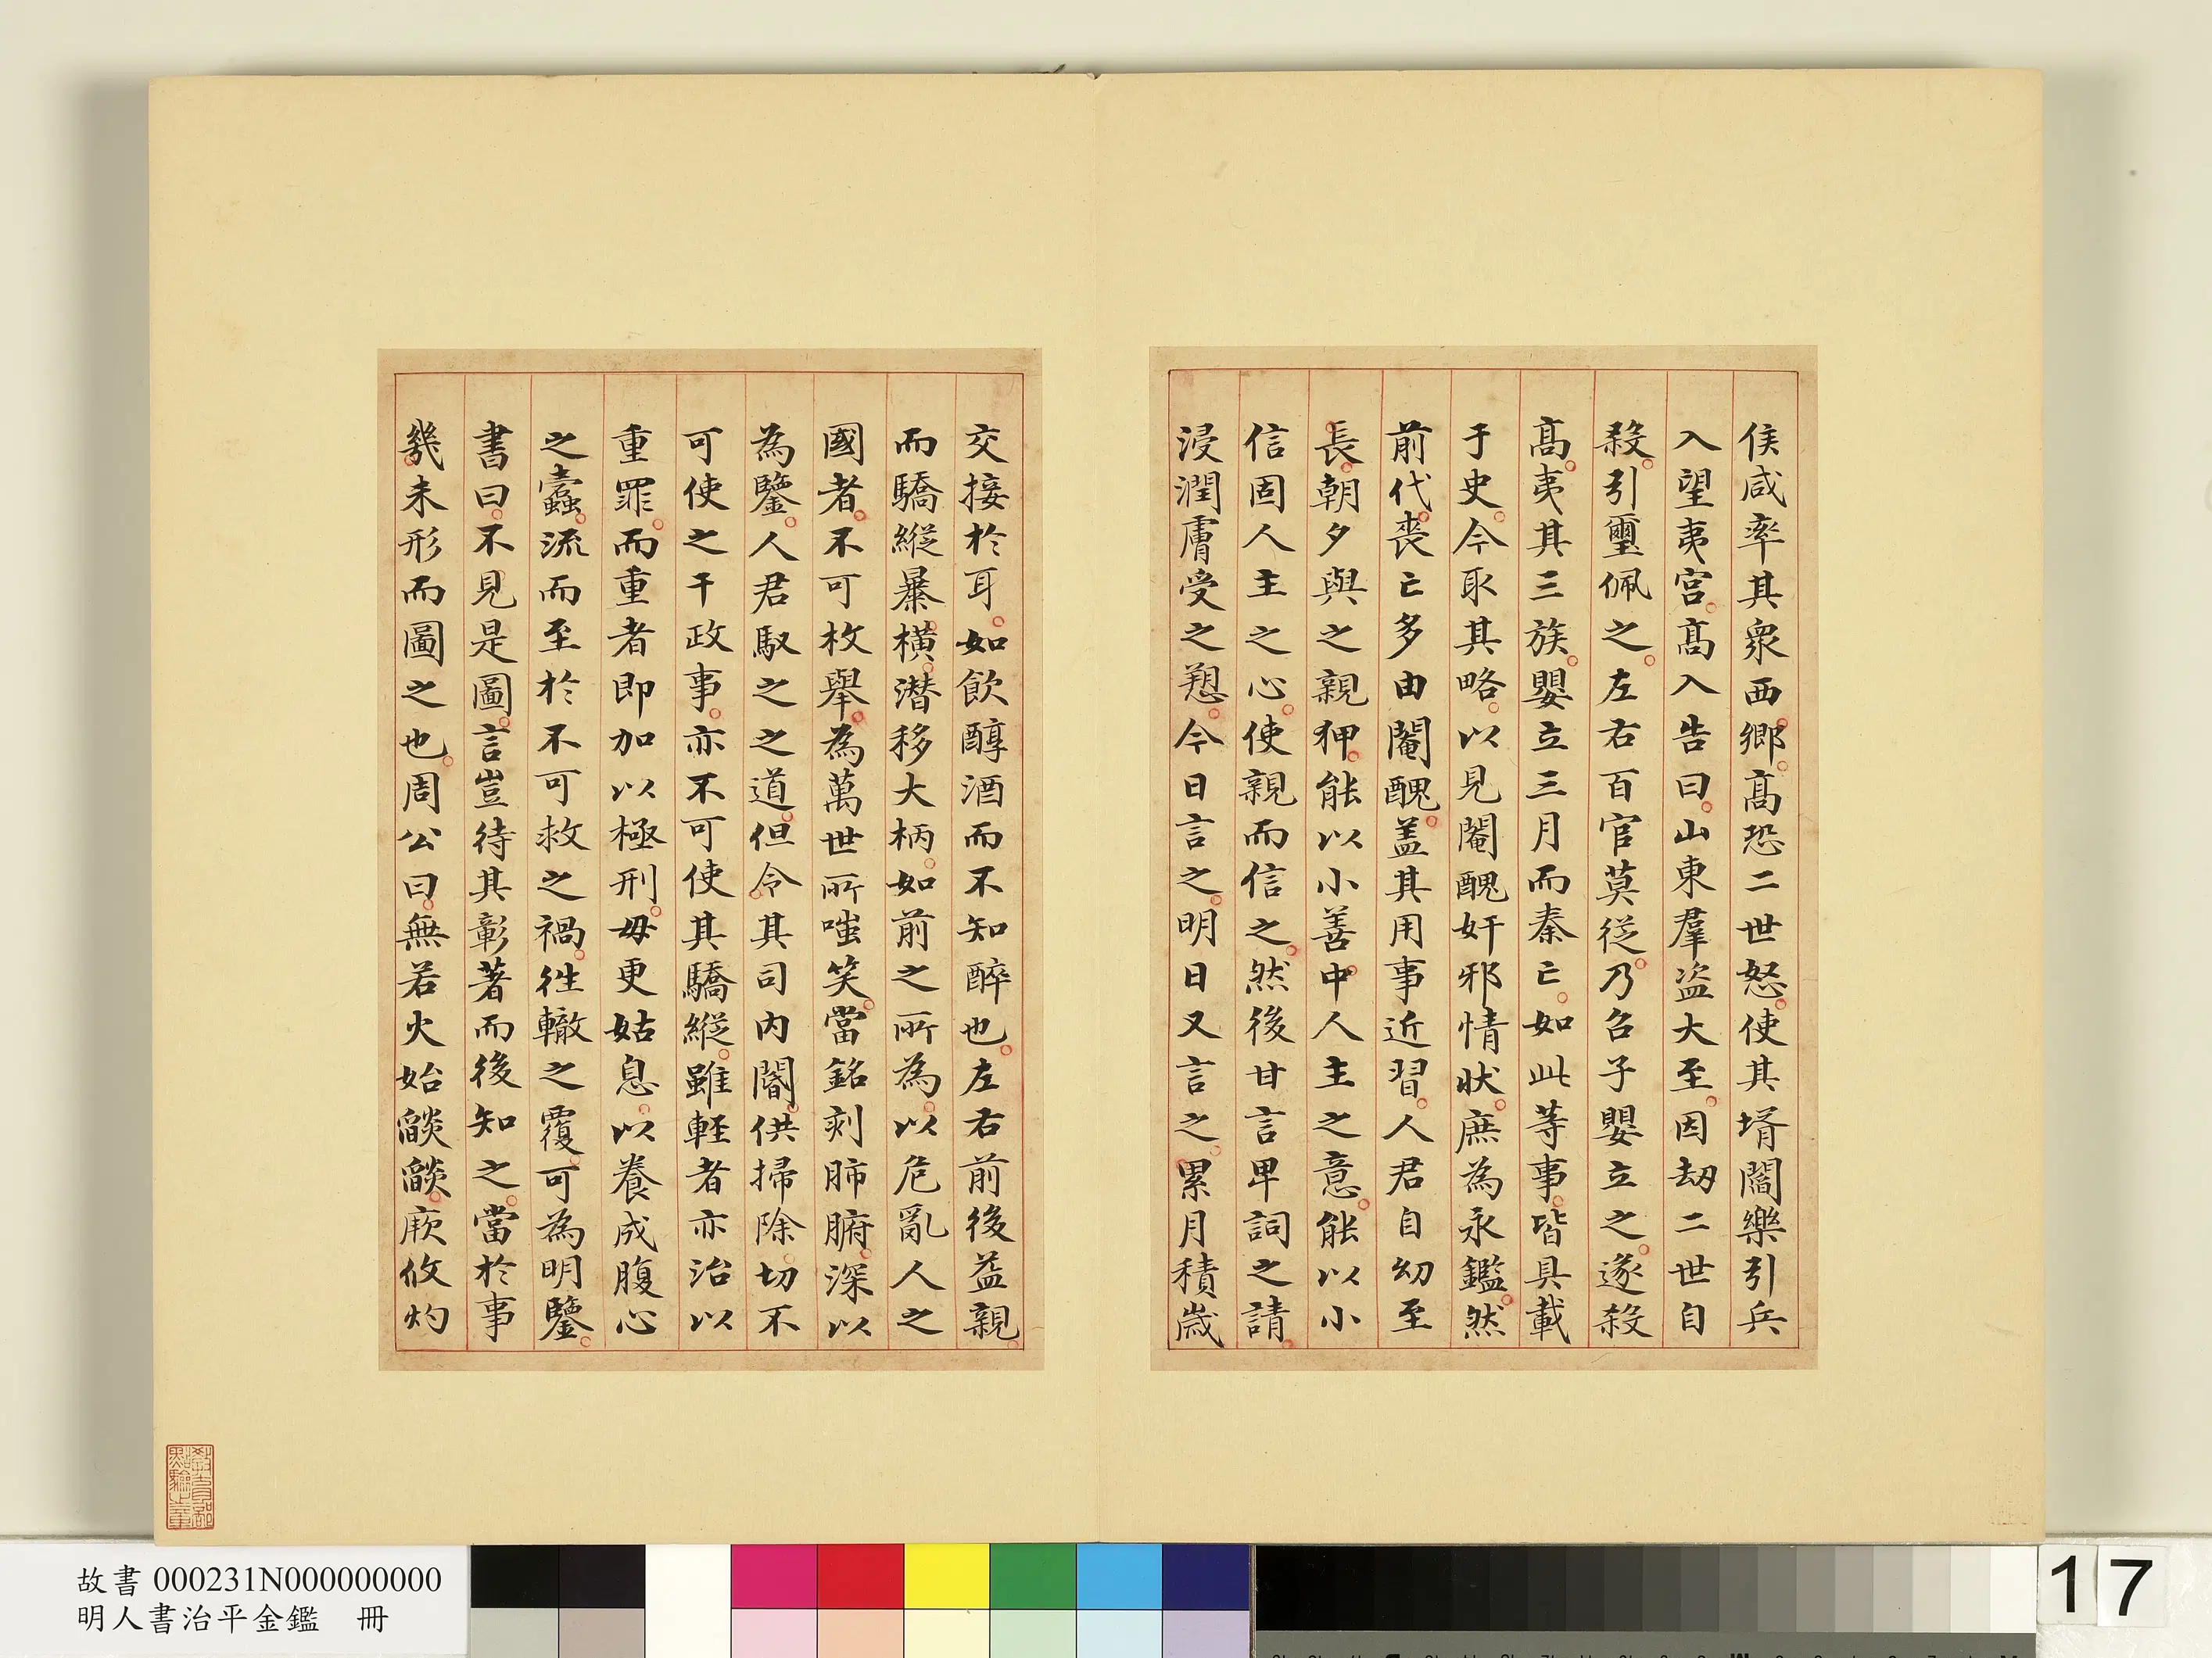 侯咸率其衆西鄉高恐二世怒使其壻閻樂引兵
入望夷宮高入告曰山東羣盗大至因劫二世自
殺引璽佩之左右百官莫從乃召子嬰立之遂殺
高夷其三族嬰立三月而秦亡如此等事皆具載
于史今取其略以見閹醜奸邪情狀庶為永鑑然
前代喪亡多由閹醜盖其用事近習人君自幼至
長朝夕與之親狎能以小善中人主之意能以小
信固人主之心使親而信之然後甘言卑詞之請
浸潤膚受之愬今日言之明日又言之累月積歲
交接於耳如飲醇酒而不知醉也左右前後益親
而驕縱暴橫潜移大柄如前之所為以危亂人之
國者不可枚舉為萬世所嗤笑當銘刻肺腑深以
為鑒人君馭之之道但令其司內閽供掃除切不
可使之干政事亦不可使其驕縱雖輕者亦治以
重罪而重者即加以極刑毋更姑息以養成腹心
之蠹流而至於不可救之禍徃轍之覆可為明鑒
書曰不見是圖言豈待其彰著而後知之當於事
幾未形而圖之也周公曰無若火始燄燄厥攸灼
教育部點驗之章
故書 000231N000000000
明人書治平金鑑　冊
17